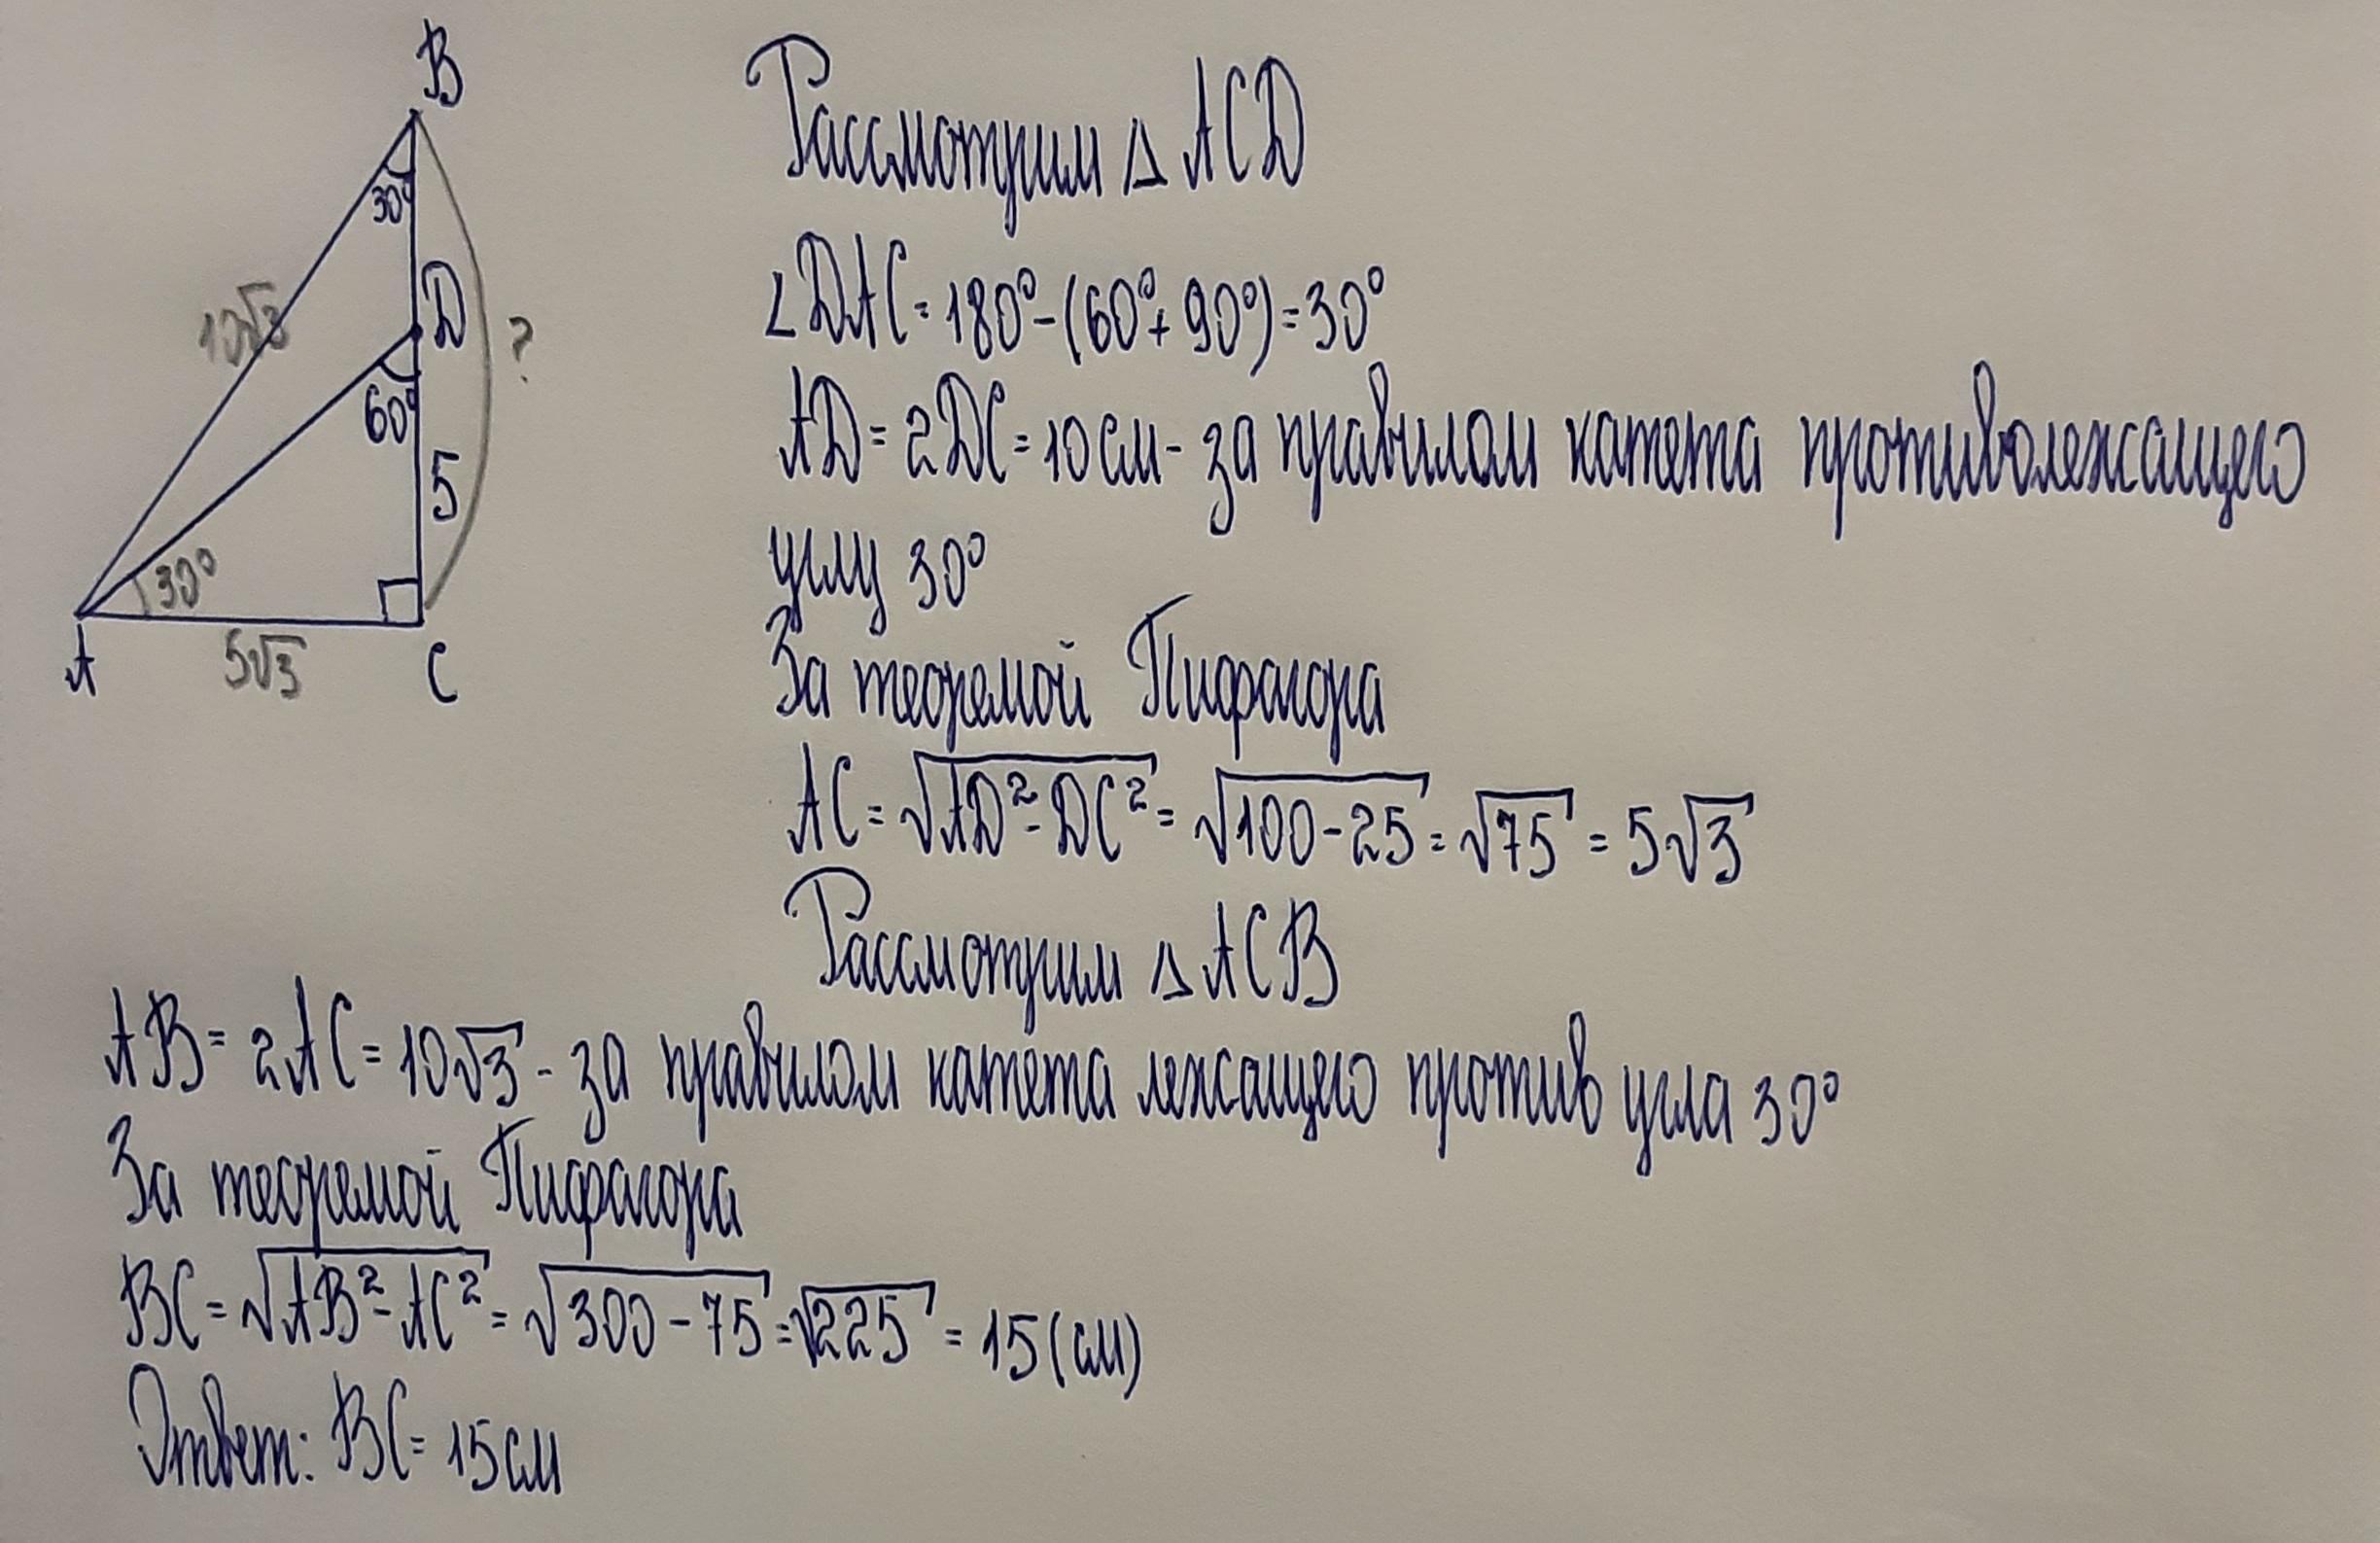 B
30°
10√3
D
?
60°
5
30°
A
5√3
C
Рассмотрим △ ACD
∠DAC = 180° - (60° + 90°) = 30°
AD = 2DC = 10 см - за правилом катета противолежащего
углу 30°
За теоремой Пифагора
AC = √AD² - DC² = √100 - 25 = √75 = 5√3
Рассмотрим △ ACB
AB = 2AC = 10√3 - за правилом катета лежащего против угла 30°
За теоремой Пифагора
BC = √AB² - AC² = √300 - 75 = √225 = 15 (см)
Ответ: BC = 15 см